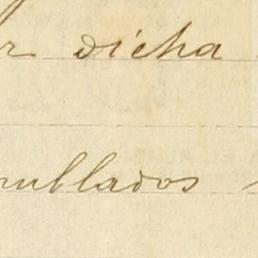 r dicha
nublados